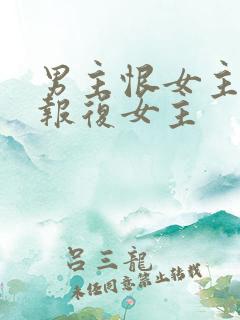 男主恨女主
報復女主
呂三龍
未经同意禁止转载